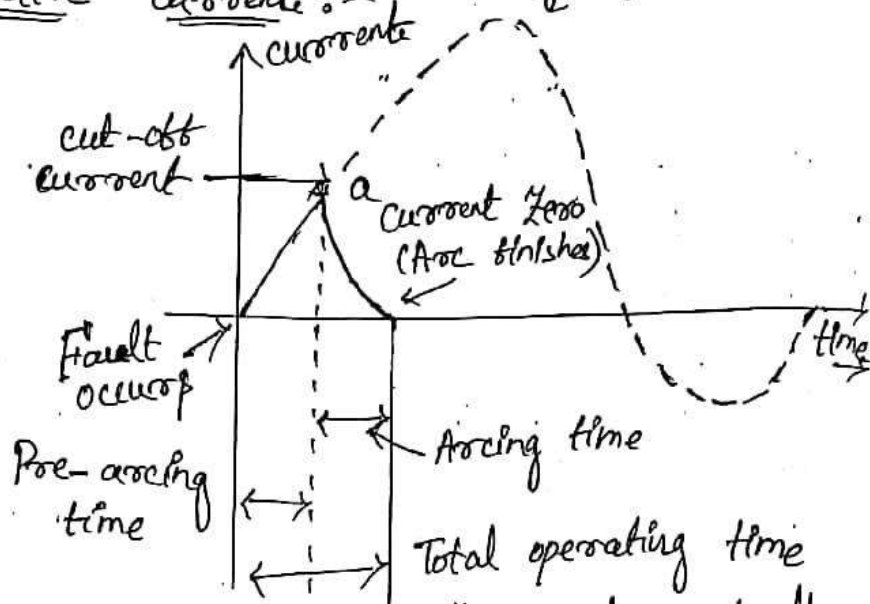 current
cut-off
current
a
Current Zero
(Arc finishes)
Fault
occurs
time
Arcing time
Pre-arcing
time
Total operating time